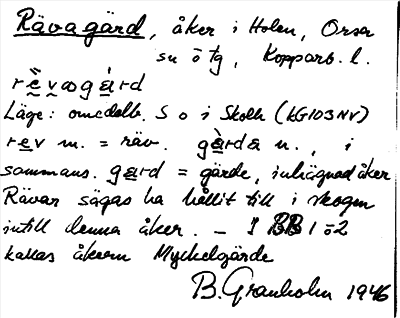 Rävagärd, åker i Holen, Orsa
sn o tg, Kopparb. l.
rè̱vagá̱rd
Läge: omedelb. S o i Skolh (LG103NV)
re̱v m. = räv. gä̀rda n., i
sammans. ga̱rd = gärde, inhägnad åker
Rävar sägas ha hållit till i skogen
intill denna åker. – I BB 1 o 2
kallas åkern Myckelgärde
B. Granholm 1946